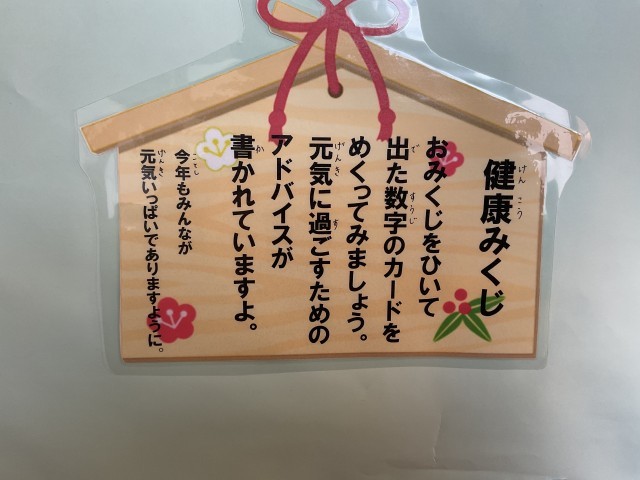 健康みくじ
おみくじをひいて
出た数字のカードを
めくってみましょう。
元気に過ごすための
アドバイスが
書かれていますよ。
今年もみんなが
元気いっぱいでありますように。